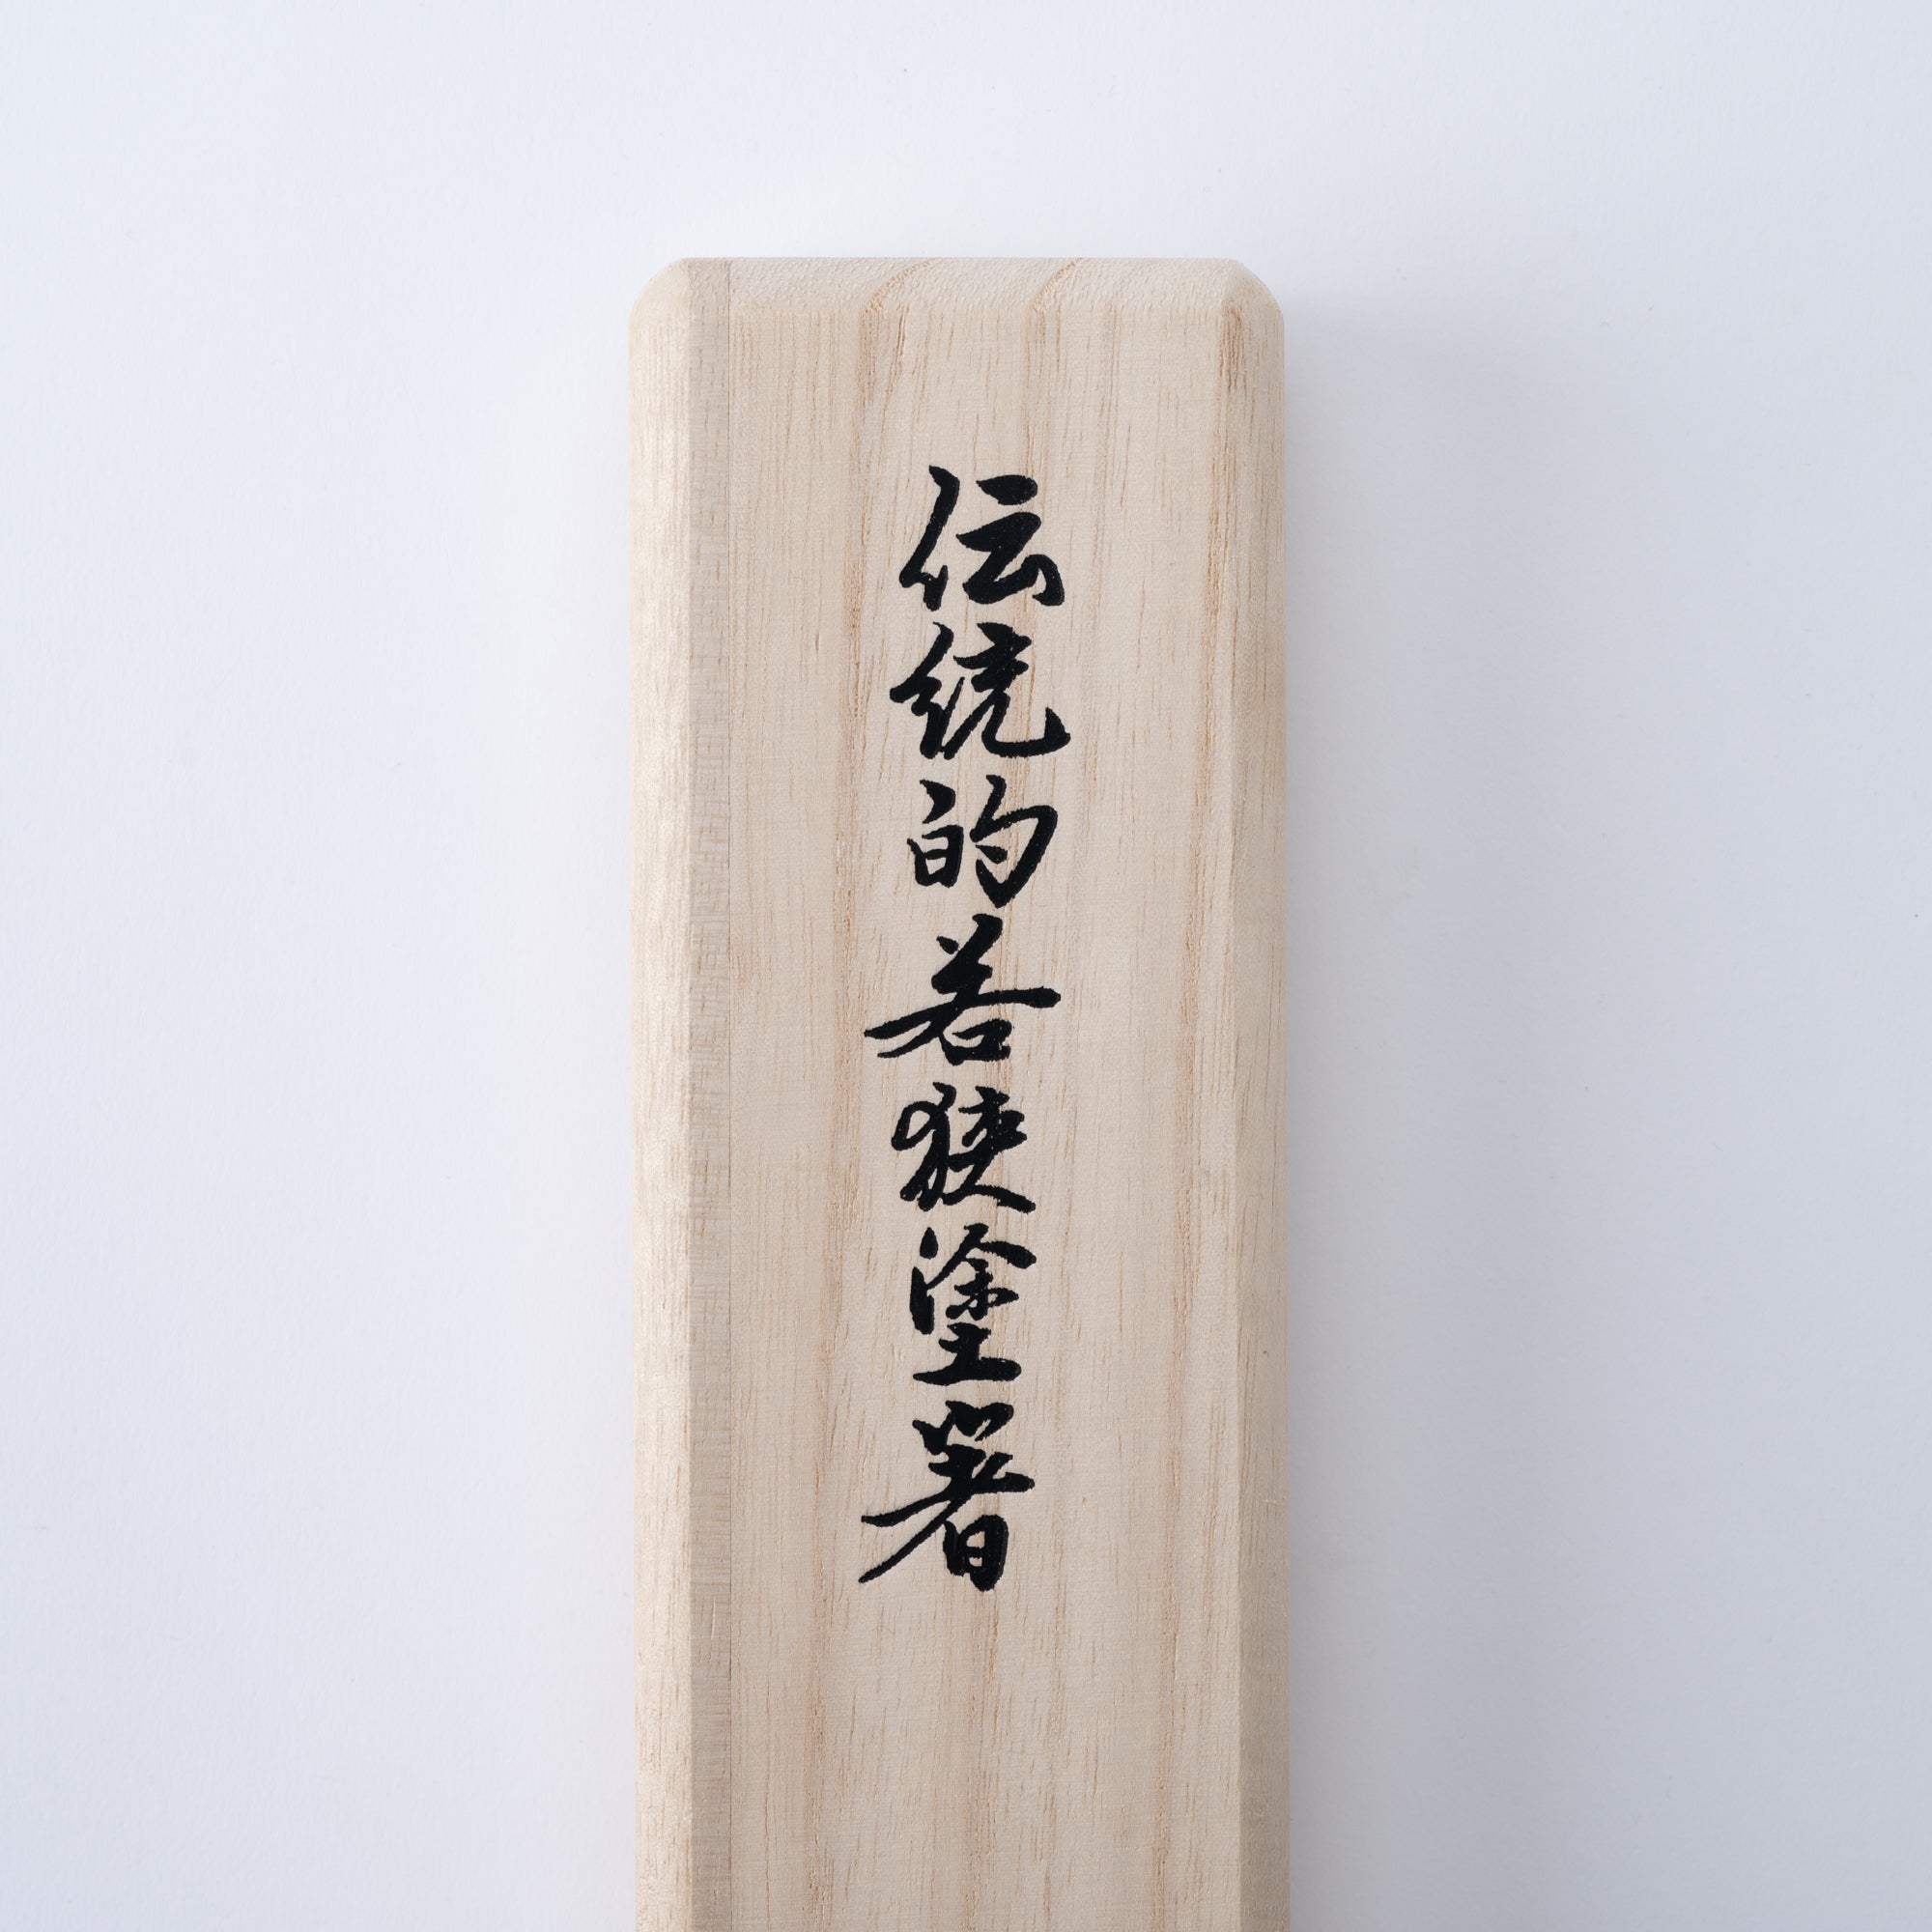 伝統的若狭塗箸